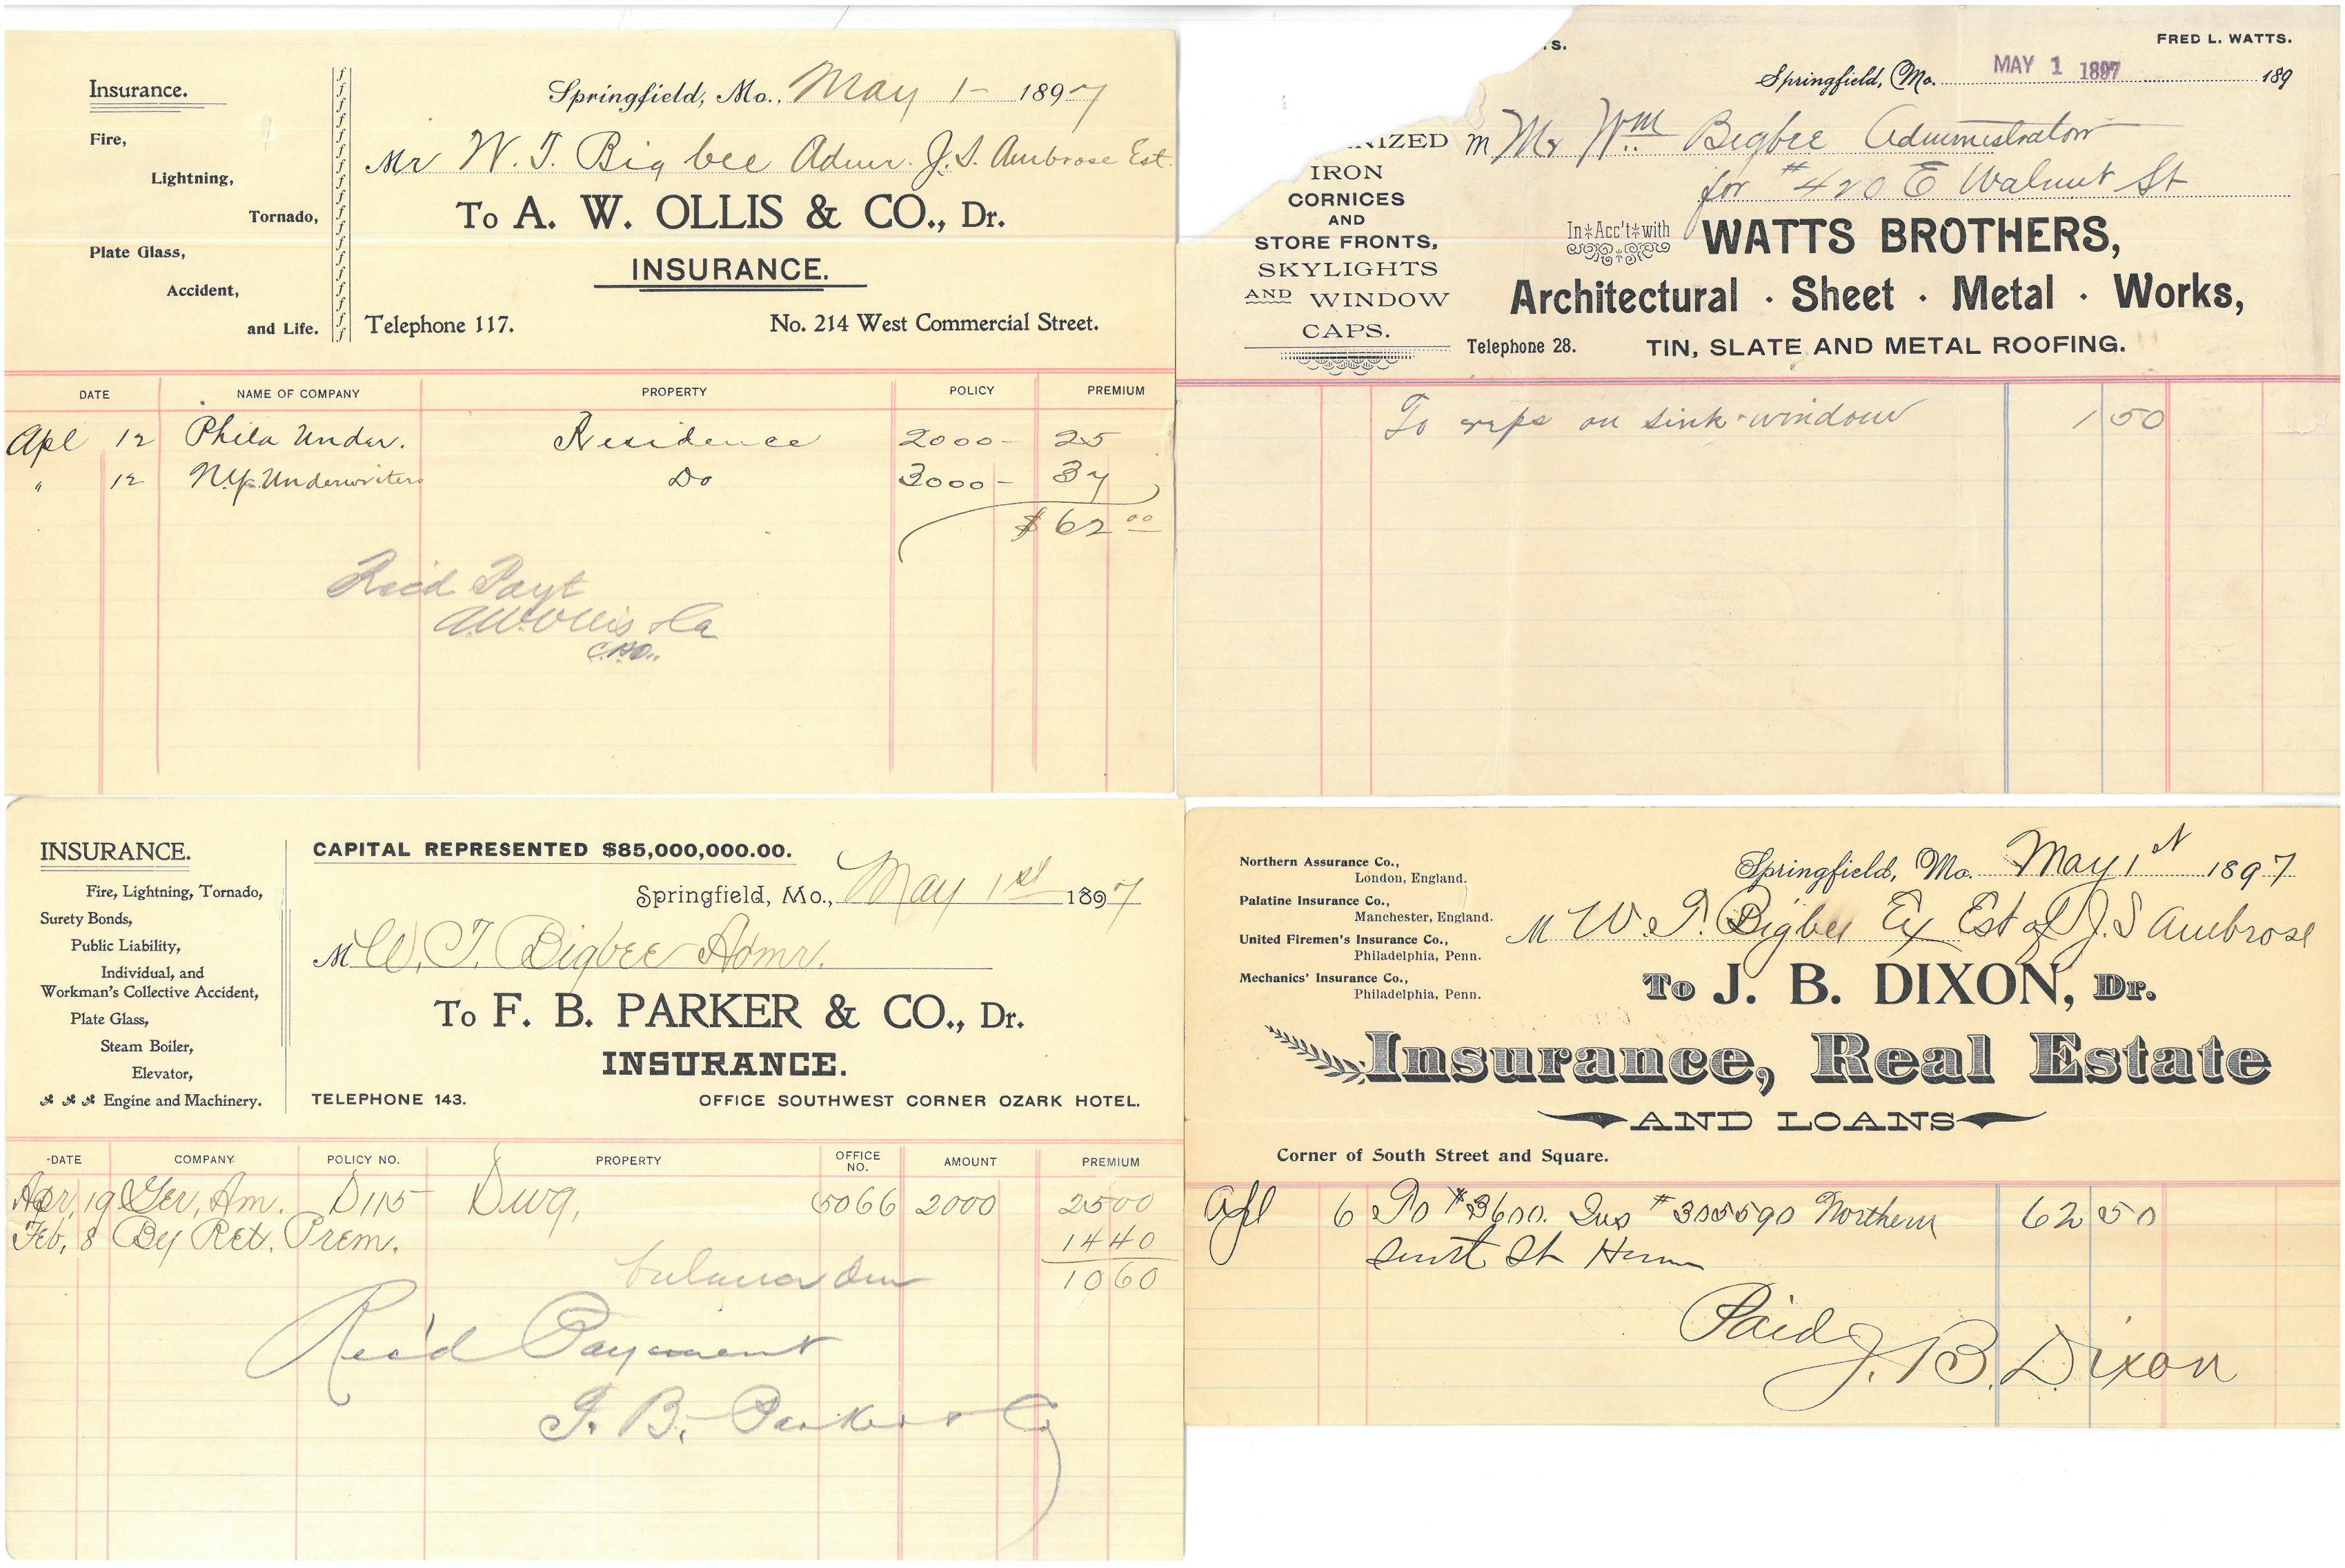 Insurance.
Fire,
Lightning,
Tornado,
Plate Glass,
Accident,
and Life.
Springfield, Mo., May 1- 1897
Mr W. T. Big bee Admr. J. S. Ambrose Est.
To A. W. OLLIS & CO., Dr.
INSURANCE.
Telephone 117. No. 214 West Commercial Street.
DATE NAME OF COMPANY PROPERTY POLICY PREMIUM
Apl 12 Phila Under. Residence 2000- 25
" 12 N.Y. Underwriters Do 3000- 37
$62 00
Rec'd Payt
A.W. Ollis & Co
TS. FRED L. WATTS.
Springfield, Mo. MAY 1 1897 189
M Mr Wm Bigbee Administrator
for #420 E Walnut St
NIZED
IRON
CORNICES
AND
STORE FRONTS,
SKYLIGHTS
AND WINDOW
CAPS.
In Acc't with WATTS BROTHERS,
Architectural · Sheet · Metal · Works,
Telephone 28. TIN, SLATE AND METAL ROOFING.
To reps on sink window 1 50
INSURANCE.
Fire, Lightning, Tornado,
Surety Bonds,
Public Liability,
Individual, and
Workman's Collective Accident,
Plate Glass,
Steam Boiler,
Elevator,
Engine and Machinery.
CAPITAL REPRESENTED $85,000,000.00.
Springfield, Mo., May 1st 1897
M W. T. Bigbee Admr.
To F. B. PARKER & CO., Dr.
INSURANCE.
TELEPHONE 143. OFFICE SOUTHWEST CORNER OZARK HOTEL.
DATE COMPANY POLICY NO. PROPERTY OFFICE NO. AMOUNT PREMIUM
Apr, 19 Ger, Am. D115 Dwg, 5066 2000 2500
Feb, 8 By Ret. Prem. 1440
balance due 1060
Rec'd Payment
F. B. Parker & Co
Northern Assurance Co.,
London, England.
Palatine Insurance Co.,
Manchester, England.
United Firemen's Insurance Co.,
Philadelphia, Penn.
Mechanics' Insurance Co.,
Philadelphia, Penn.
Springfield, Mo. May 1st 1897
M W. T. Bigbee Ex Est of J. S Ambrose
To J. B. DIXON, Dr.
Insurance, Real Estate
AND LOANS
Corner of South Street and Square.
Apl 6 To $3600. Ins #305590 Northern 62 50
St
Paid
J. B. Dixon